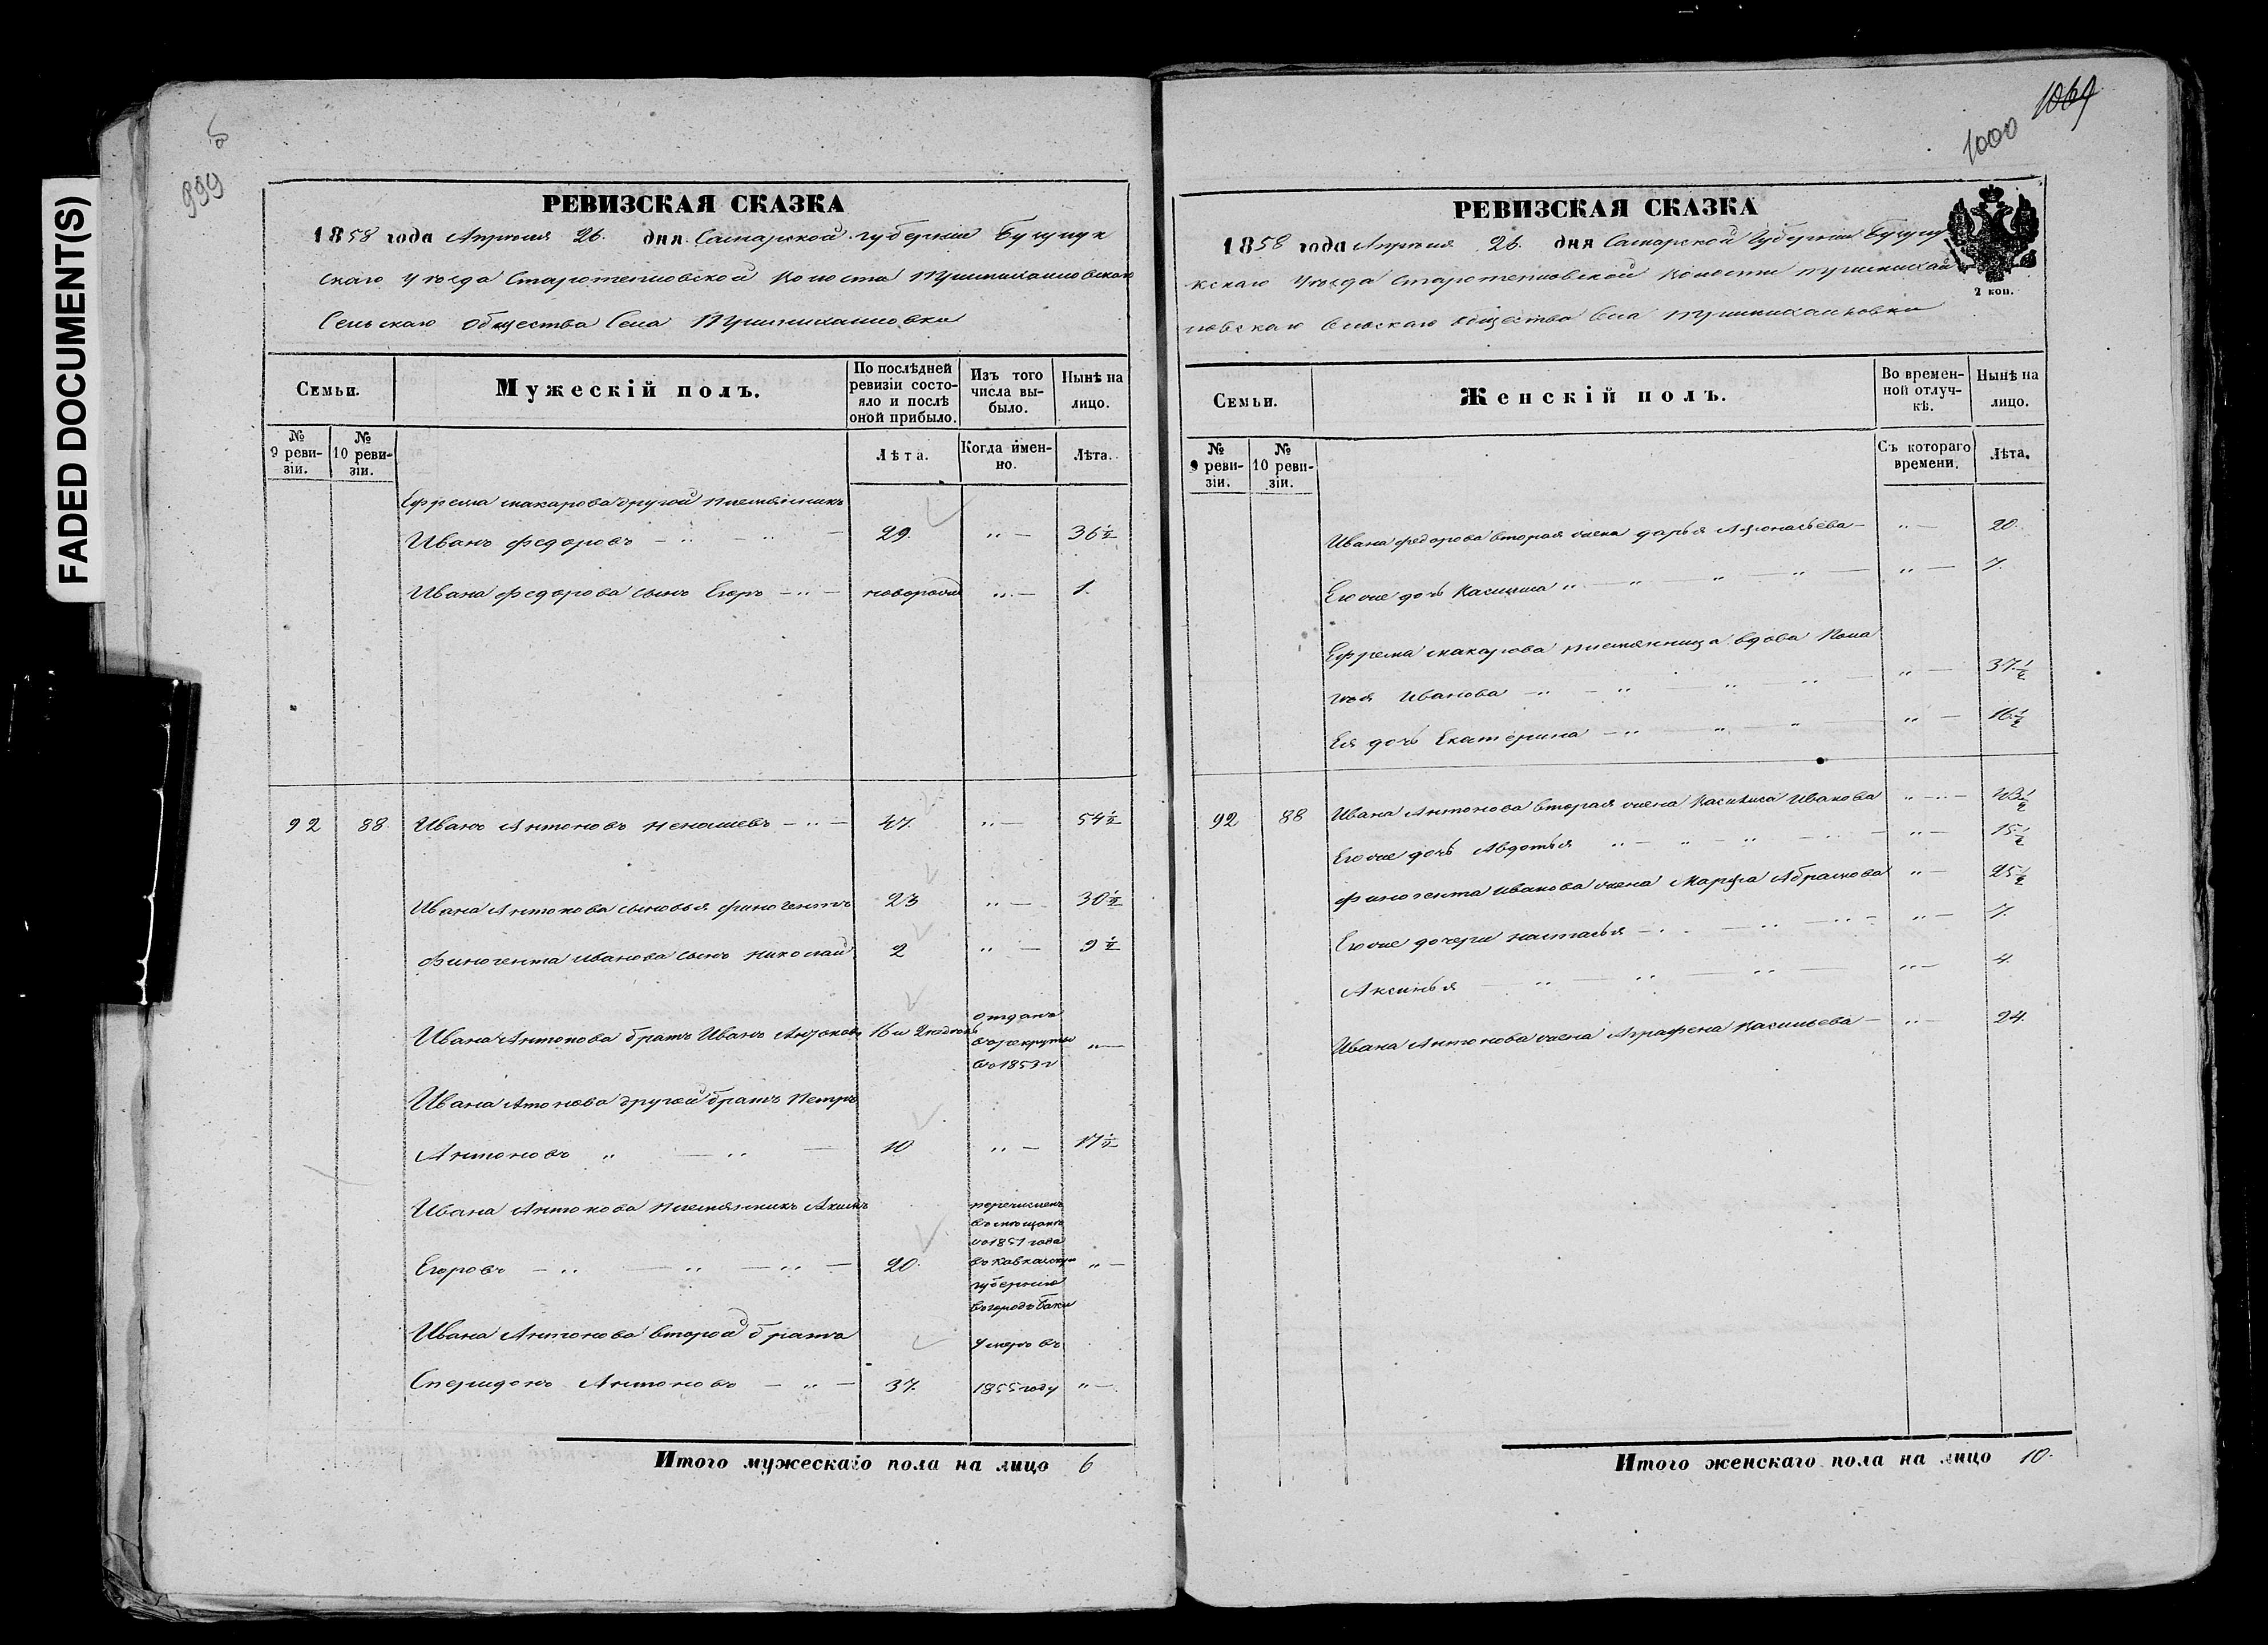 FADED DOCUMENT(S)
999
РЕВИЗСКАЯ СКАЗКА
1858 года Апреля 26. дня Самарской губерніи Бузулук
скаго уѣзда Старотепловской Волости
Сельскаго общества Села
Семьи.
Мужескій полъ.
По послѣдней ревизіи состо-
яло и послѣ
оной прибыло.
Изъ того
числа вы-
было.
Нынѣ на
лицо.
№
9 реви-
зіи.
№
10 реви-
зіи.
Лѣта.
Когда имен-
но.
Лѣта.
Ефрема Макарова другой племянникъ
Иванъ Федоровъ — „ — „ — 29. „ — 36 ½
Ивана Федорова сынъ Егоръ — „ — новорожд „ — 1.
92 88 Иванъ Антоновъ — „ — 47. „ — 54 ½
Ивана Антонова сыновья Финогентъ 23 „ — 30 ½
Финогента Иванова сынъ Николай 2 „ — 9 ½
Ивана Антонова братъ Иванъ Антоновъ 16 и 2
отданъ
въ рекруты
въ 1853 г
„ —
Ивана Атонова другой братъ Петръ
Антоновъ „ — „ — 10 „ — 17 ½
Ивана Антонова племянникъ Акимъ
Егоровъ — „ — „ — „ — 20.
перечисленъ
въ мещане
1851 года
въ Кавказскую
губернию
въ городъ Баки
„ —
Ивана Антонова второй братъ
Спиридонъ Антоновъ — „ — 37.
умеръ въ
1855 году
„ —
Итого мужескаго пола на лицо 6
1069
1000
РЕВИЗСКАЯ СКАЗКА
1858 года Апреля 26. дня Самарской Губерніи Бузулу
кскаго Уѣзда Старотепловской Волости
новскаго Сельскаго общества Села
2 коп.
Семьи.
Женскій полъ.
Во времен-
ной отлуч-
кѣ.
Нынѣ на
лицо.
№
9 реви-
зіи.
№
10 реви-
зіи.
Съ котораго
времени.
Лѣта.
Ивана Федорова вторая жена Дарья Афонасьева — „ — 20.
Его же дочь „ — „ — „ — „ — „ — 7.
Ефрема Макарова племянница вдова Пела
гѣя Иванова — „ — „ — „ — „ — „ — 37 ½
Ея дочь Екатерина — „ — „ — „ — „ — 16 ½
92 88 Ивана Антонова вторая жена Василиса Иванова „ — „ — 43 ½
Его же дочь Авдотья „ — „ — „ — „ — „ — 15 ½
Финогента Иванова жена Марфа Абрамова „ — 25 ½
Его же дочери Настасья — „ — „ — „ — „ — 7.
Аксинья — „ — „ — „ — „ — 4.
Ивана Антонова жена Аграфена Васильева — „ — 24.
Итого женскаго пола на лицо 10.